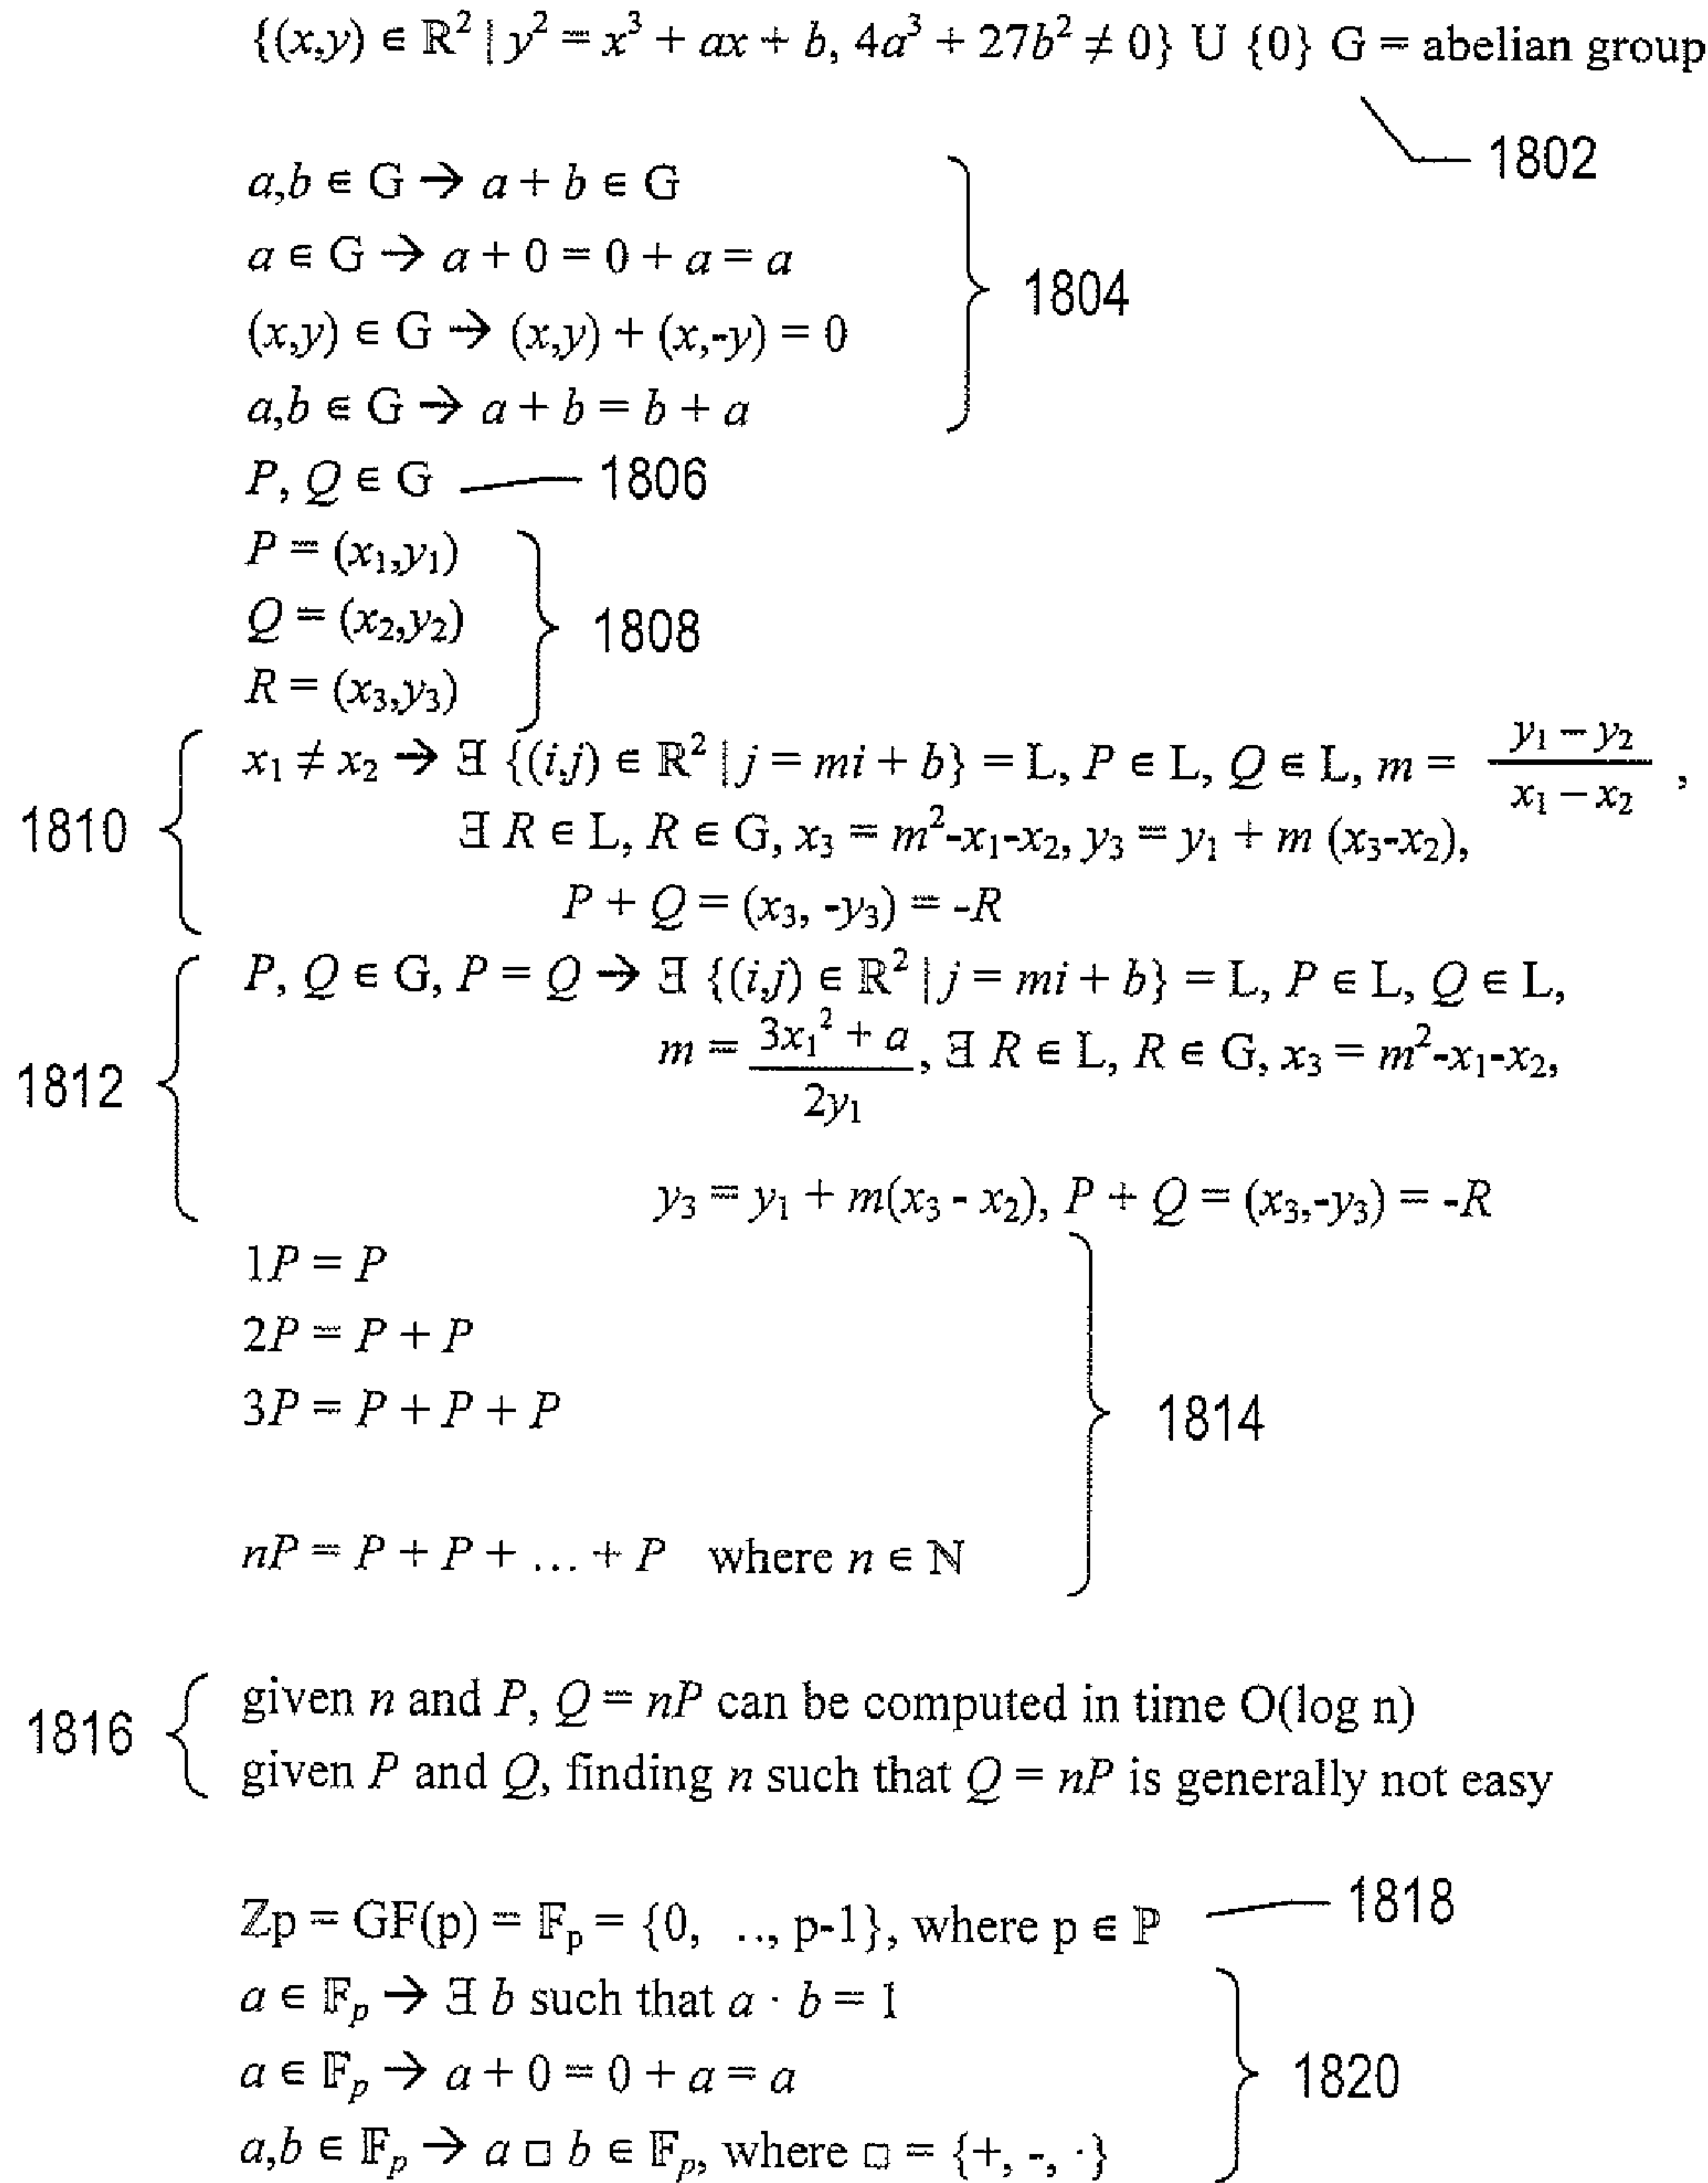 {(x,y) ∈ ℝ² | y² = x³ + ax + b, 4a³ + 27b² ≠ 0} U {0} G = abelian group
1802
a,b ∈ G → a + b ∈ G
a ∈ G → a + 0 = 0 + a = a
1804
(x,y) ∈ G → (x,y) + (x,-y) = 0
a,b ∈ G → a + b = b + a
P, Q ∈ G 1806
P = (x₁,y₁)
Q = (x₂,y₂) 1808
R = (x₃,y₃)
x₁ ≠ x₂ → ∃ {(i,j) ∈ ℝ² | j = mi + b} = L, P ∈ L, Q ∈ L, m = (y₁ − y₂)/(x₁ − x₂) ,
1810 ∃ R ∈ L, R ∈ G, x₃ = m²-x₁-x₂, y₃ = y₁ + m (x₃-x₂),
P + Q = (x₃, -y₃) = -R
P, Q ∈ G, P = Q → ∃ {(i,j) ∈ ℝ² | j = mi + b} = L, P ∈ L, Q ∈ L,
1812 m = (3x₁² + a)/(2y₁), ∃ R ∈ L, R ∈ G, x₃ = m²-x₁-x₂,
y₃ = y₁ + m(x₃ - x₂), P + Q = (x₃,-y₃) = -R
1P = P
2P = P + P
3P = P + P + P 1814
nP = P + P + ... + P where n ∈ ℕ
1816 given n and P, Q = nP can be computed in time O(log n)
given P and Q, finding n such that Q = nP is generally not easy
ℤp = GF(p) = 𝔽ₚ = {0, .., p-1}, where p ∈ ℙ 1818
a ∈ 𝔽ₚ → ∃ b such that a · b = 1
a ∈ 𝔽ₚ → a + 0 = 0 + a = a 1820
a,b ∈ 𝔽ₚ → a □ b ∈ 𝔽ₚ, where □ = {+, -, ·}